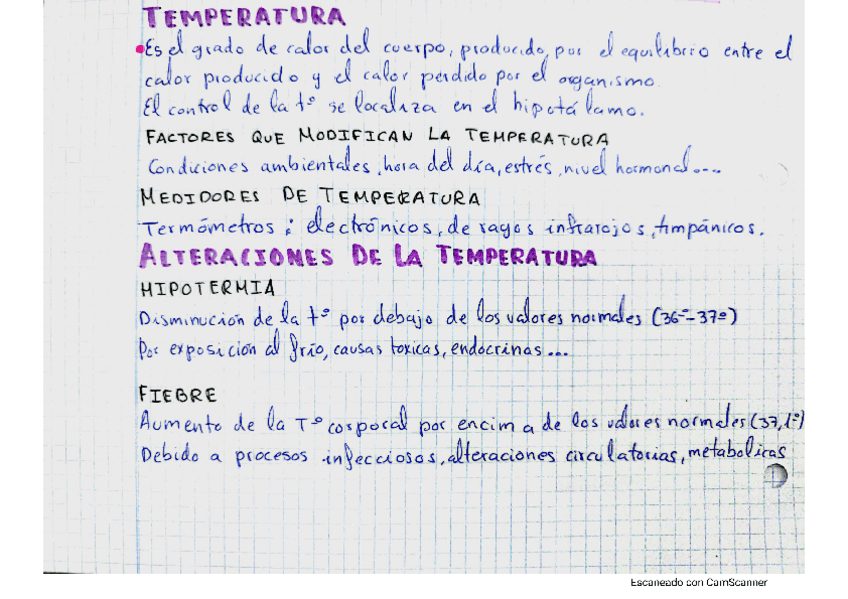 TEMPERATURA
Es el grado de calor del cuerpo, producido por el equilibrio entre el
calor producido y el calor perdido por el organismo.
El control de la tº se localiza en el hipotálamo.
FACTORES QUE MODIFICAN LA TEMPERATURA
Condiciones ambientales, hora del día, estrés, nivel hormonal....
MEDIDORES DE TEMPERATURA
Termómetros: electrónicos, de rayos infrarojos, timpánicos.
ALTERACIONES DE LA TEMPERATURA
HIPOTERMIA
Disminución de la tº por debajo de los valores normales (36º-37º)
Por exposición al frío, causas toxicas, endocrinas...
FIEBRE
Aumento de la Tº corporal por encima de los valores normales (37,1º)
Debido a procesos infecciosos, alteraciones circulatorias, metabolicas
1
Escaneado con CamScanner